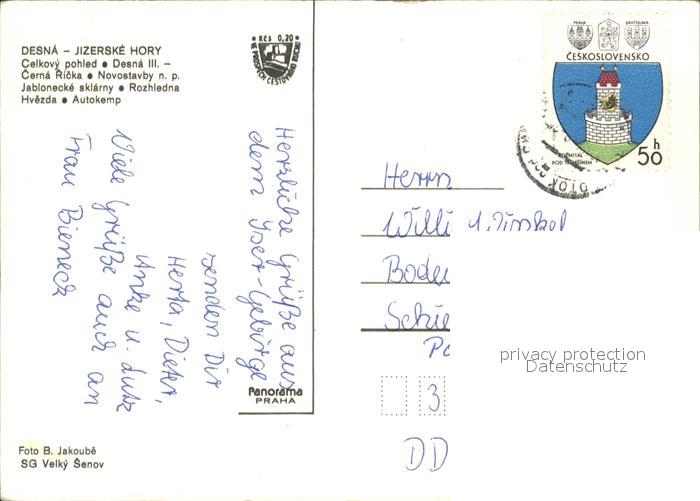 DESNÁ – JIZERSKÉ HORY
Celkový pohled ● Desná III. –
Černá Říčka ● Novostavby n. p.
Jablonecké sklárny ● Rozhledna
Hvězda ● Autokemp
Kčs 0,20
VE PROSPĚCH CESTOVNÍHO RUCHU
PRAHA
BRATISLAVA
ČESKOSLOVENSKO
ROŽMITÁL
POD TŘEMŠÍNEM
50 h
Herzliche Grüße aus
dem Iser-Gebirge
senden Dir
Herta, Dieter,
Anke u. Lutz
Viele Grüße auch an
Frau Bieneck
Herrn
Willi
Bode
Schie
Po
3
DD
privacy protection
Datenschutz
Panorama
PRAHA
Foto B. Jakoubě
SG Velký Šenov